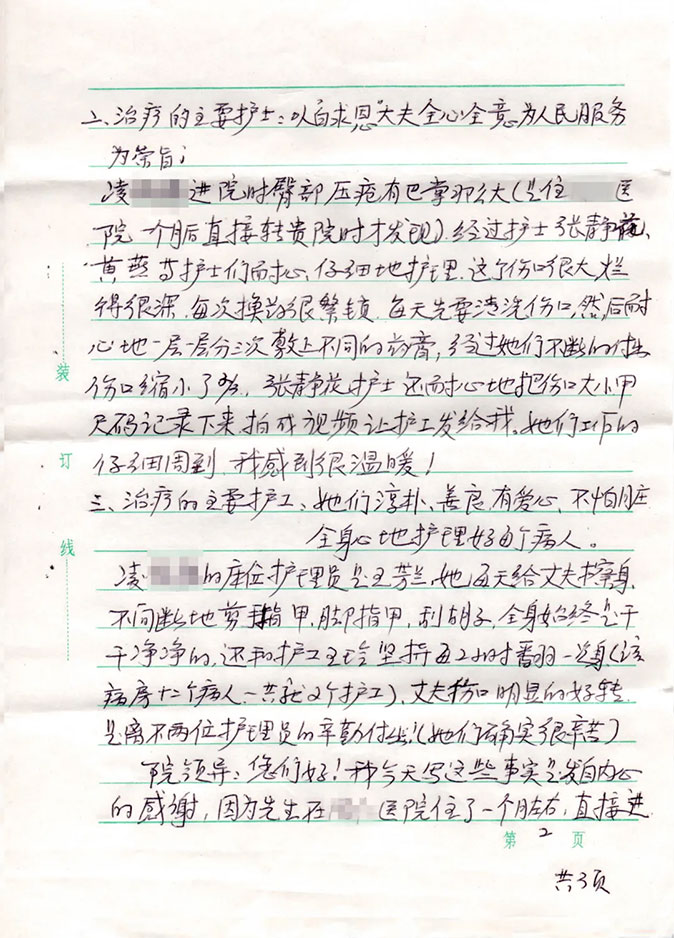 二、治疗的主要护士：以白求恩"大夫全心全意为人民服务
为荣旨；
凌 进院时臀部压疮有巴掌那么大(是住 医
院一个月后直接转贵院时才发现).经过护士张静花、
黄燕等护士们耐心、仔细地护理.这个伤口很大,烂
得很深.每次换药很繁锁.每天先要清洗伤口,然后耐
心地一层一层分三次敷上不同的药膏,经过她们不断的付出
伤口缩小了 .张静花护士还耐心地把伤口大小用
尺码记录下来,拍成视频让护工发给我.她们工作的
仔细周到,我感到很温暖!
三、治疗的主要护工：她们淳朴、善良、有爱心、不怕脏
全身心地护理好每个病人。
凌 的床位护理员是王芳兰,她每天给丈夫擦身、
不间断地剪手指甲,脚指甲,刮胡子,全身始终是干
干净净的,还和护工王玲坚持每2小时翻一次身(该
病房十二个病人一共就2个护工)、丈夫伤口明显的好转
是离不两位护理员的辛勤付出!(她们确实很辛苦)
院领导：您们好!我今天写这些事实是发自内心
的感谢,因为先生在 医院住了一个月左右,直接进
装
订
线
第 2 页
共3页